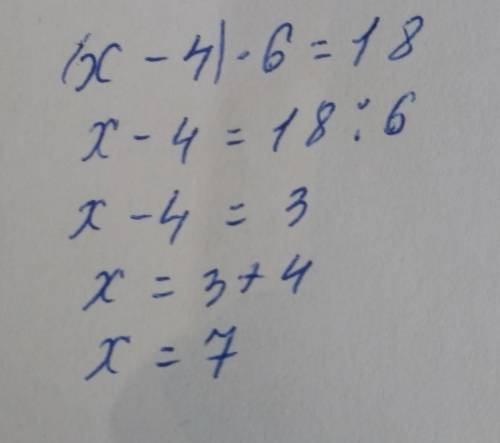 (x - 4) · 6 = 18
x - 4 = 18 : 6
x - 4 = 3
x = 3 + 4
x = 7